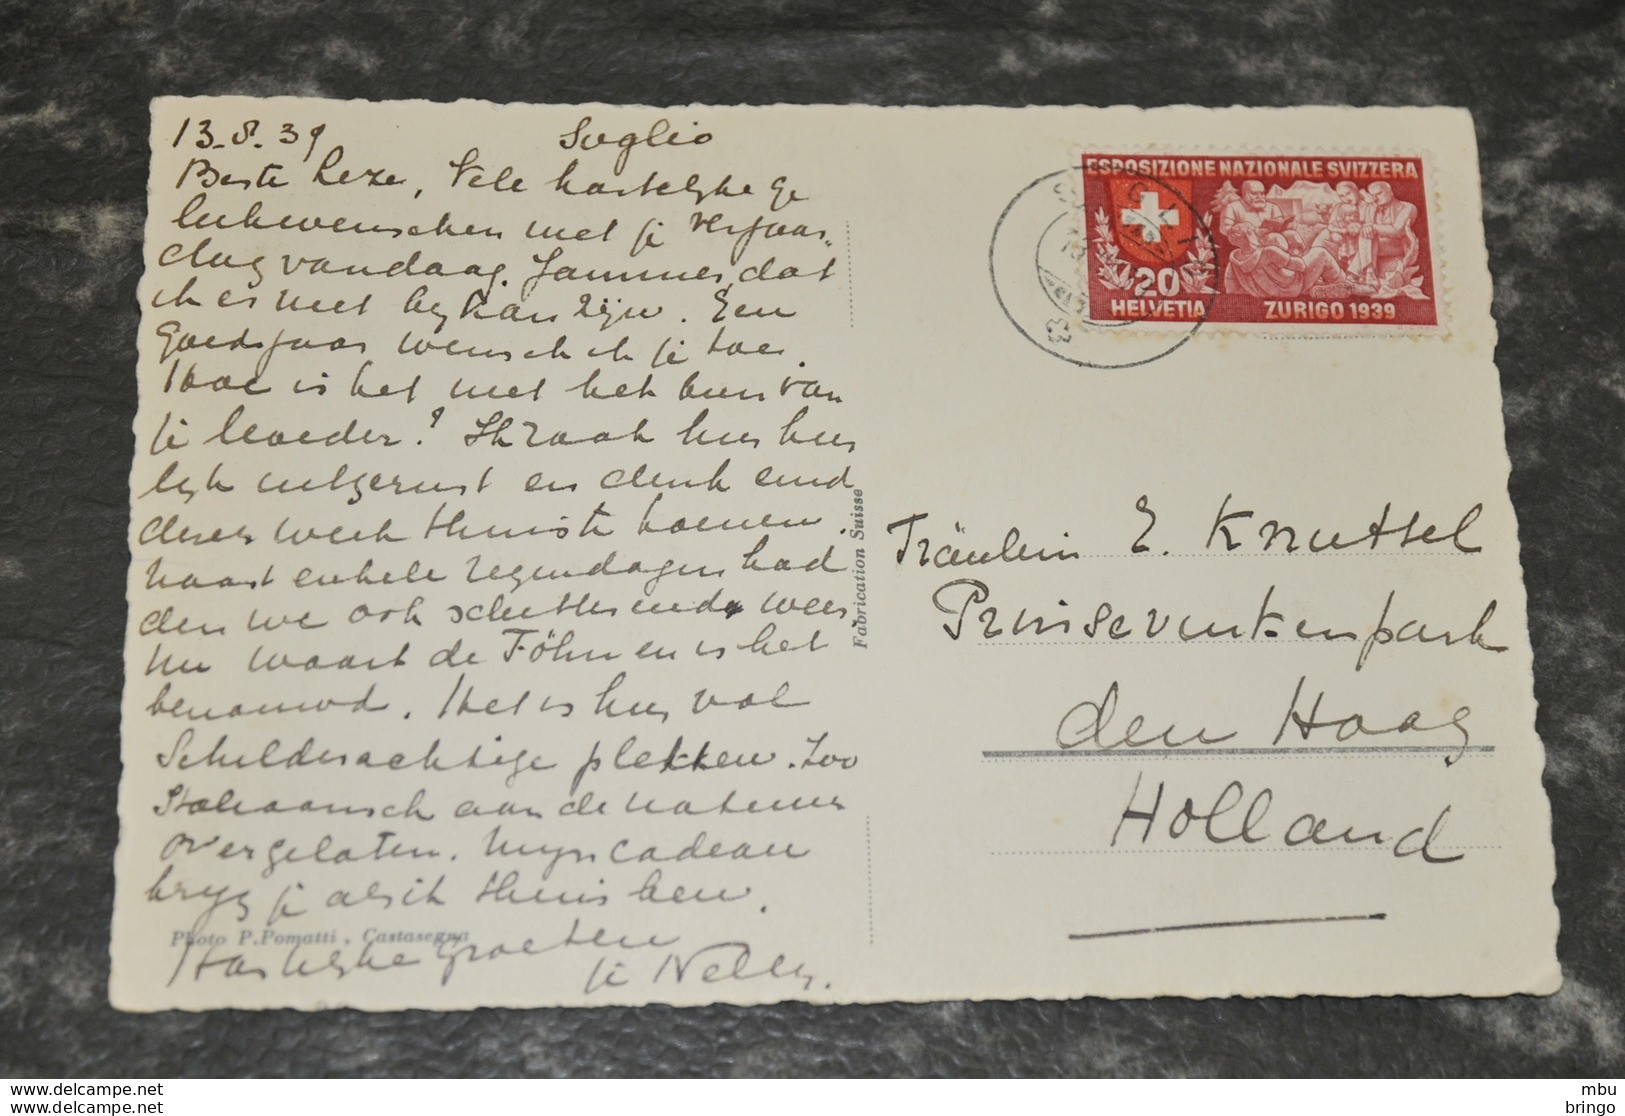 13.8.39 Soglio
Beste Leze, Vele hartelijke ge
lukwenschen met je verjaar„
dag vandaag. Jammer, dat
ik er niet bij kan zijn. Een
goed jaar wensch ik je toe.
Hoe is het met het been van
je broeder? Ik raak hier heer
lijk uitgerust en denk eind
dezer week thuis te komen.
Naast enkele regendagen had
den we ook schitterende weer
nu waait de Föhn en is het
benauwd. Het is hier vol
Schilderachtige plekken. Zoo
Italiaansch aan de natuur
overgelaten. Mijn cadeau
krijg je als ik thuis ben.
Hartelijke Groeten
je Nelly.
Photo P.Pomatti, Castasegna
Fabrication Suisse
ESPOSIZIONE NAZIONALE SVIZZERA
20
HELVETIA ZURIGO 1939
Fräulein E. Knuttel
Prinsevinkenpark
den Haag
Holland
www.delcampe.net mbu
www.delcampe.net bringo